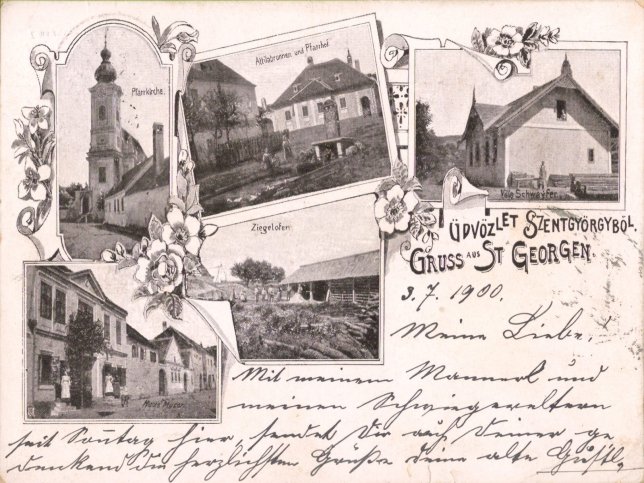 Pfarrkirche.
Attilabrunnen und Pfarrhof.
Villa Schwayfer.
Ziegelofen.
ÜDVÖZLET SZENTGYÖRGYBÖL.
GRUSS AUS ST GEORGEN.
3. 7. 1900.
Meine Liebe,
Mit meinem Mannerl und
meinen Schwiegereltern
seit Sonntag hier, sendet Dir auch Deiner ge
denkend die herzlichsten Grüße deine alte Gustl.